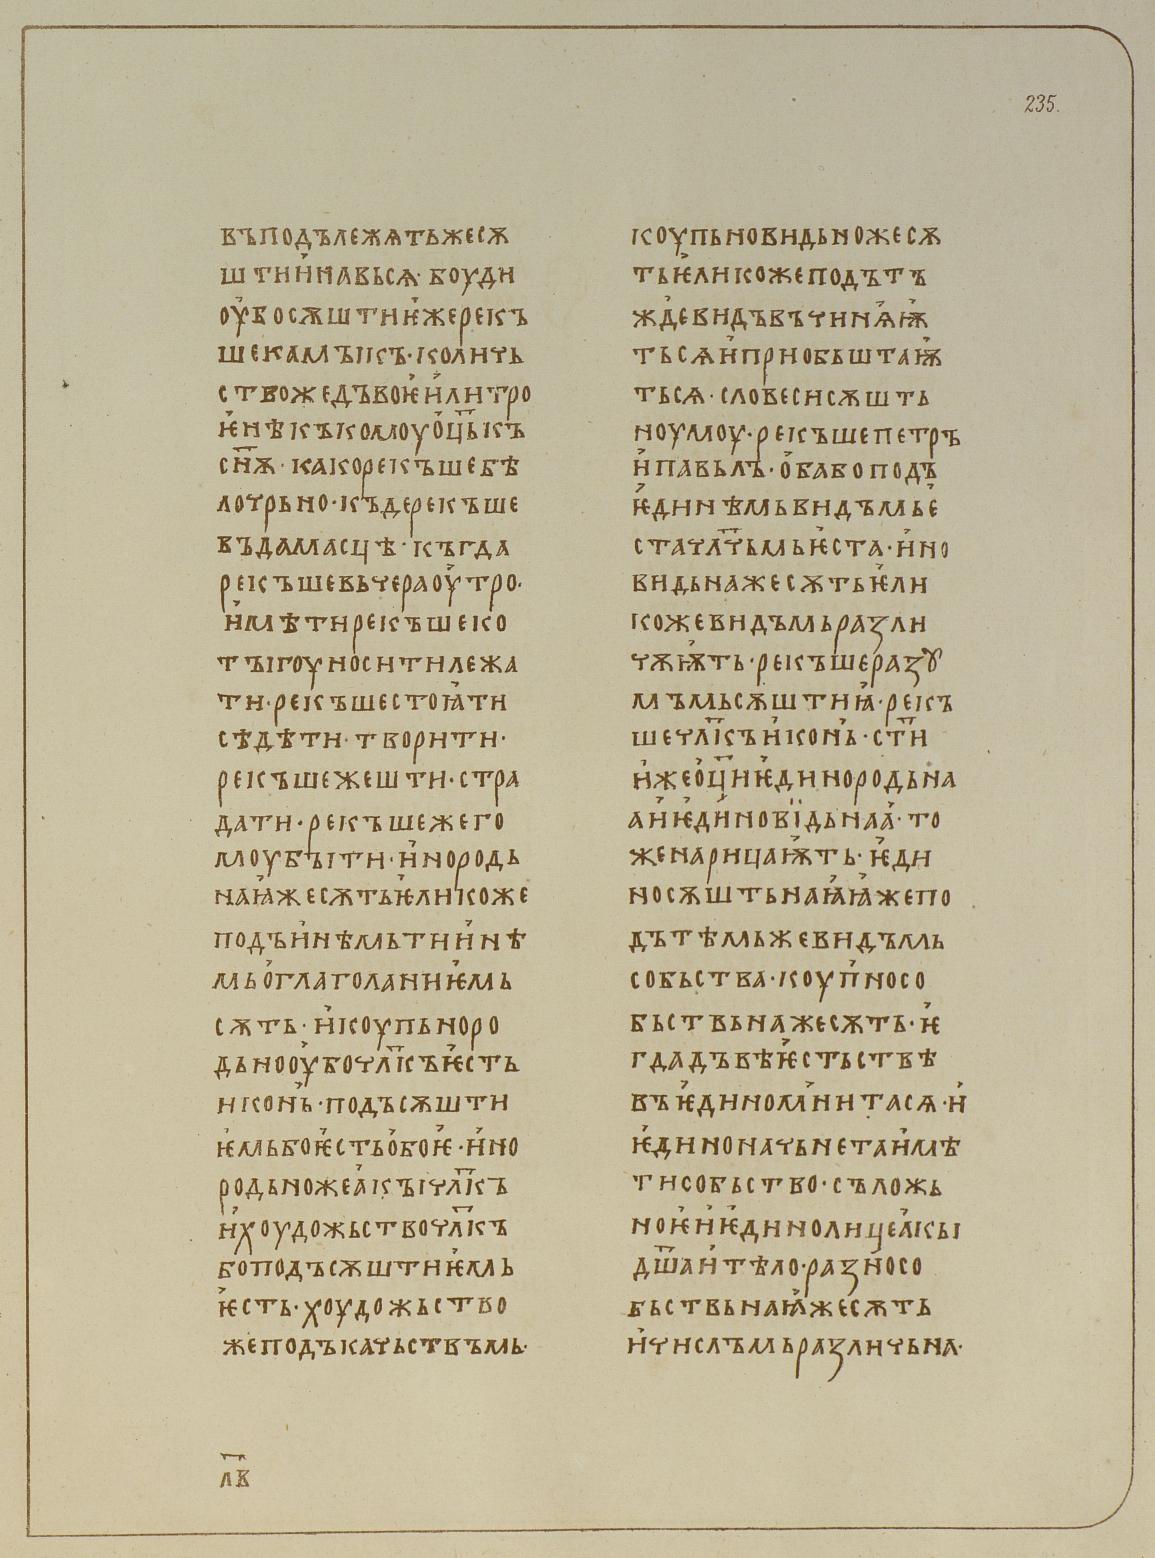 235.
въподълежѧтьжесѫ
штиина вьсѧ· боуди
оубосѫштиѥжерекъ
шекамꙑкъ·количь
ствожедъвоѥилитро
ѥнѣкъкомоуоц҃ькъ
сн҃ѫ· какорекъшебѣ
лотрьно·къдерекъше
въдамасцѣ· къгда
рекъшевьчераоутро·
имѣтирекъшеко
тꙑгоуноситилежа
ти·рекъшестоꙗти
сѣдѣти· творити·
рекъшежешти·стра
дати·рекъшежего
моубꙑти·инородь
наꙗжесѫтьѥликоже
подъинѣмьтиинѣ
мьоглаголаниѥмь
сѫть· икоупьноро
дьнооубочл҃къѥсть
иконь·подъсѫшти
ѥмьбоѥстьобоѥ·ино
родьножеакꙑчл҃къ
ихоудожьствочл҃къ
боподъсѫштиѥмь
ѥсть·хоудожьство
жеподъкачьствъмь·
л҃в
коупьновидьножесѫ
тьѥликожеподътъ
ждевидъвъчинѧѭ
тьсѧиприобьштаѭ
тьсѧ·словесисѫшть
ноумоу·рекъшепетръ
ипавьлъ·обабоподъ
ѥдинѣмьвидъмье
стачл҃чьмьѥста·ино
видьнажесѫтьѥли
кожевидъмьразли
чѫѭть·рекъшеразꙋ
мъмьсѫштиꙗ·рекъ
шечл҃къиконь·ст҃и
ижеоц҃иѥдинородьна
аиѥдиновїдьнаа·то
женарицаѭть·ѥди
носѫштьнаꙗꙗжепо
дътѣмьжевидъмь
собьства·коупносо
бьствьнажесѫть·ѥ
гдадъвѣѥстьствѣ
въѥдиномьнитасѧ·и
ѥдиноначьнетаимѣ
тисобьство·съложь
ноѥиѥдинолицеакꙑ
дш҃аитѣло·разносо
бьствьнаꙗжесѫть
ичисльмьразличьна·